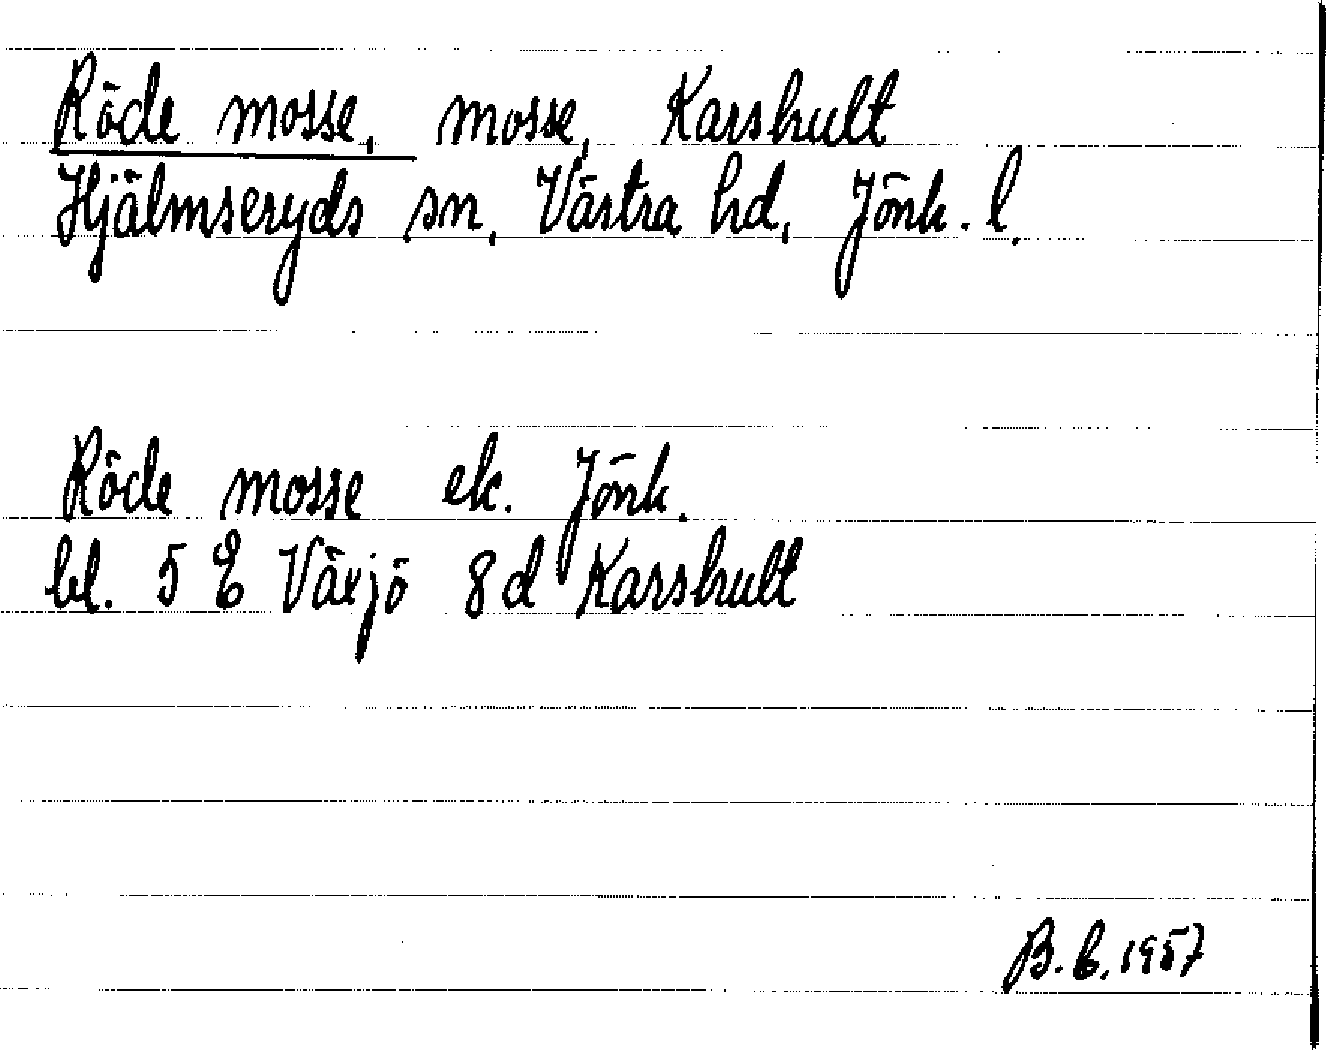 Röde mosse, mosse, Karshult
Hjälmseryds sn, Västra hd, Jönk. l.
Röde mosse ek. Jönk.
bl. 5 E Växjö 8 d Karshult
B. E. 1957